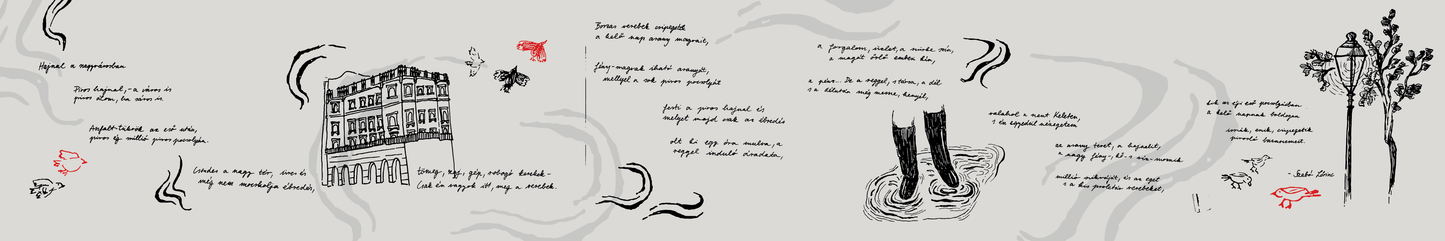 Hajnal a nagyvárosban
Piros hajnal, - a város is
piros álom, ha város is.
Aszfalt-tükrök az eső után,
piros ég millió piros pocsolyán.
Csendes a nagy tér, üres és
még nem mocskolja ébredés,
tömeg, ügy, gép, robogó kerekek -
Csak én vagyok itt, meg a verebek.
Borzas verebek csipegetik
a kelő nap arany magvait,
fény-magvak iható aranyát,
mellyel a sok piros pocsolyát
festi a piros hajnal és
melyet majd csak az ébredés
olt ki egy óra mulva, a
reggel induló áradata,
a forgalom, üzlet, a szürke kín,
a magát ölő ember kín,
a pénz... De a reggel, s társa, a dél
s a délután még messze, henyél,
valahol a ment Keleten,
s én egyedül nézegetem
az arany teret, a hajnalt,
a nagy fény-
millió szikráját, és az eget
s a kis proletár verebeket,
kik az éji eső pocsolyáiban
a kelő napnak boldogan
isszák, eszik, csipegetik
piruló
- Szabó Lőrinc